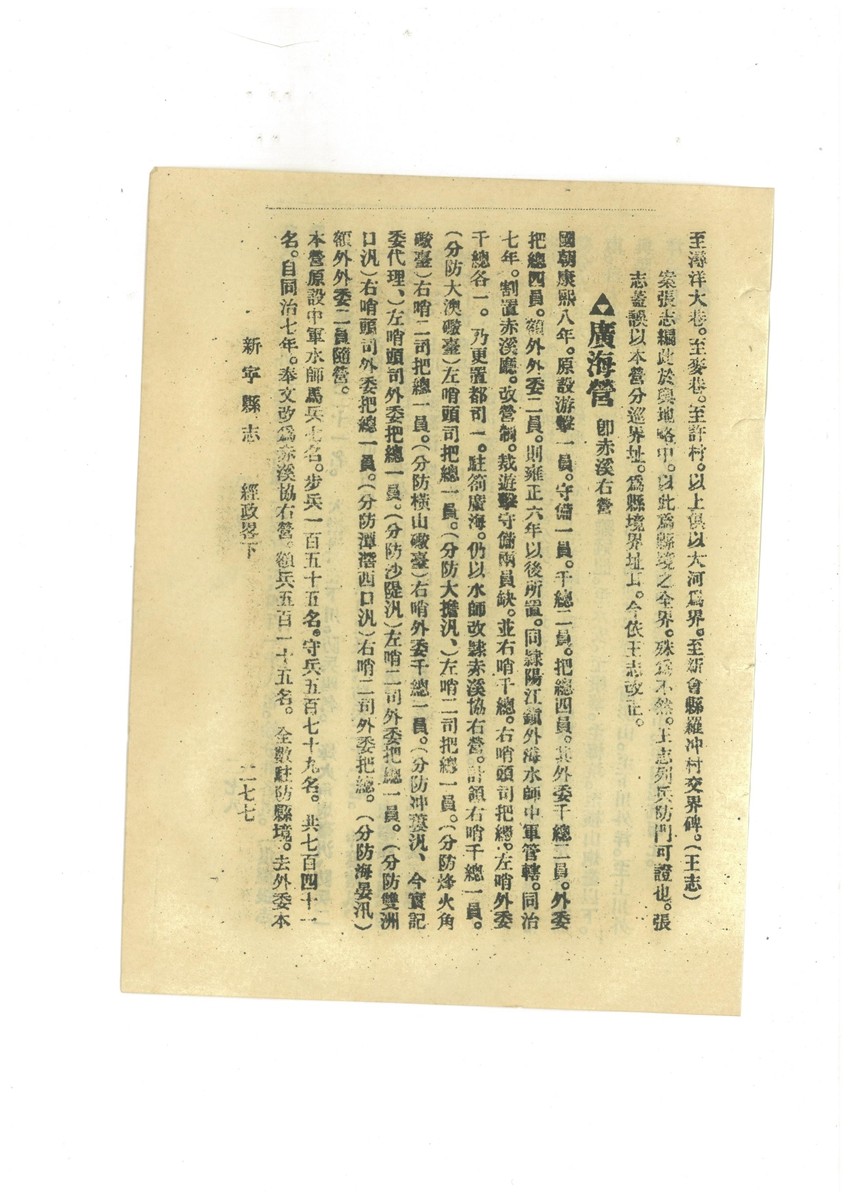 至潯洋大巷。至麥巷。至許村。以上俱以大河爲界。至新會縣羅冲村交界碑。(王志)
案張志編此於輿地略中。以此爲縣境之全界。殊爲不然。王志列兵防門可證也。張
志蓋誤以本營分巡界址。爲縣境界址耳。今依王志改正。
廣海營 卽赤溪右營
國朝康熙八年。原設游擊一員。守備一員。千總二員。把總四員。其外委千總二員。外委
把總四員。額外外委二員。則雍正六年以後所置。同隸陽江鎭外海水師中軍管轄。同治
七年。割置赤溪廳。改營制。裁遊擊守備兩員缺。並右哨千總。右哨頭司把總。左哨外委
千總各一。乃更置都司一。駐箚廣海。仍以水師改隸赤溪協右營。計領右哨千總一員。
(分防大澳礮臺)左哨頭司把總一員。(分防大擔汛、)左哨二司把總一員。(分防烽火角
礮臺)右哨二司把總一員。(分防橫山礮臺)右哨外委千總一員。(分防冲蔞汛、今實記
委代理、)左哨頭司外委把總一員。(分防沙隄汛)左哨二司外委把總一員。(分防雙洲
口汛)右哨頭司外委把總一員。(分防潭滘西口汛)右哨二司外委把總。(分防海晏汛)
額外外委二員隨營。
本營原設中軍水師馬兵七名。步兵一百五十五名。守兵五百七十九名。共七百四十一
名。自同治七年。奉文改爲赤溪協右營。額兵五百一十五名。全數駐防縣境。去外委本
新寧縣志 經政畧下 二七七